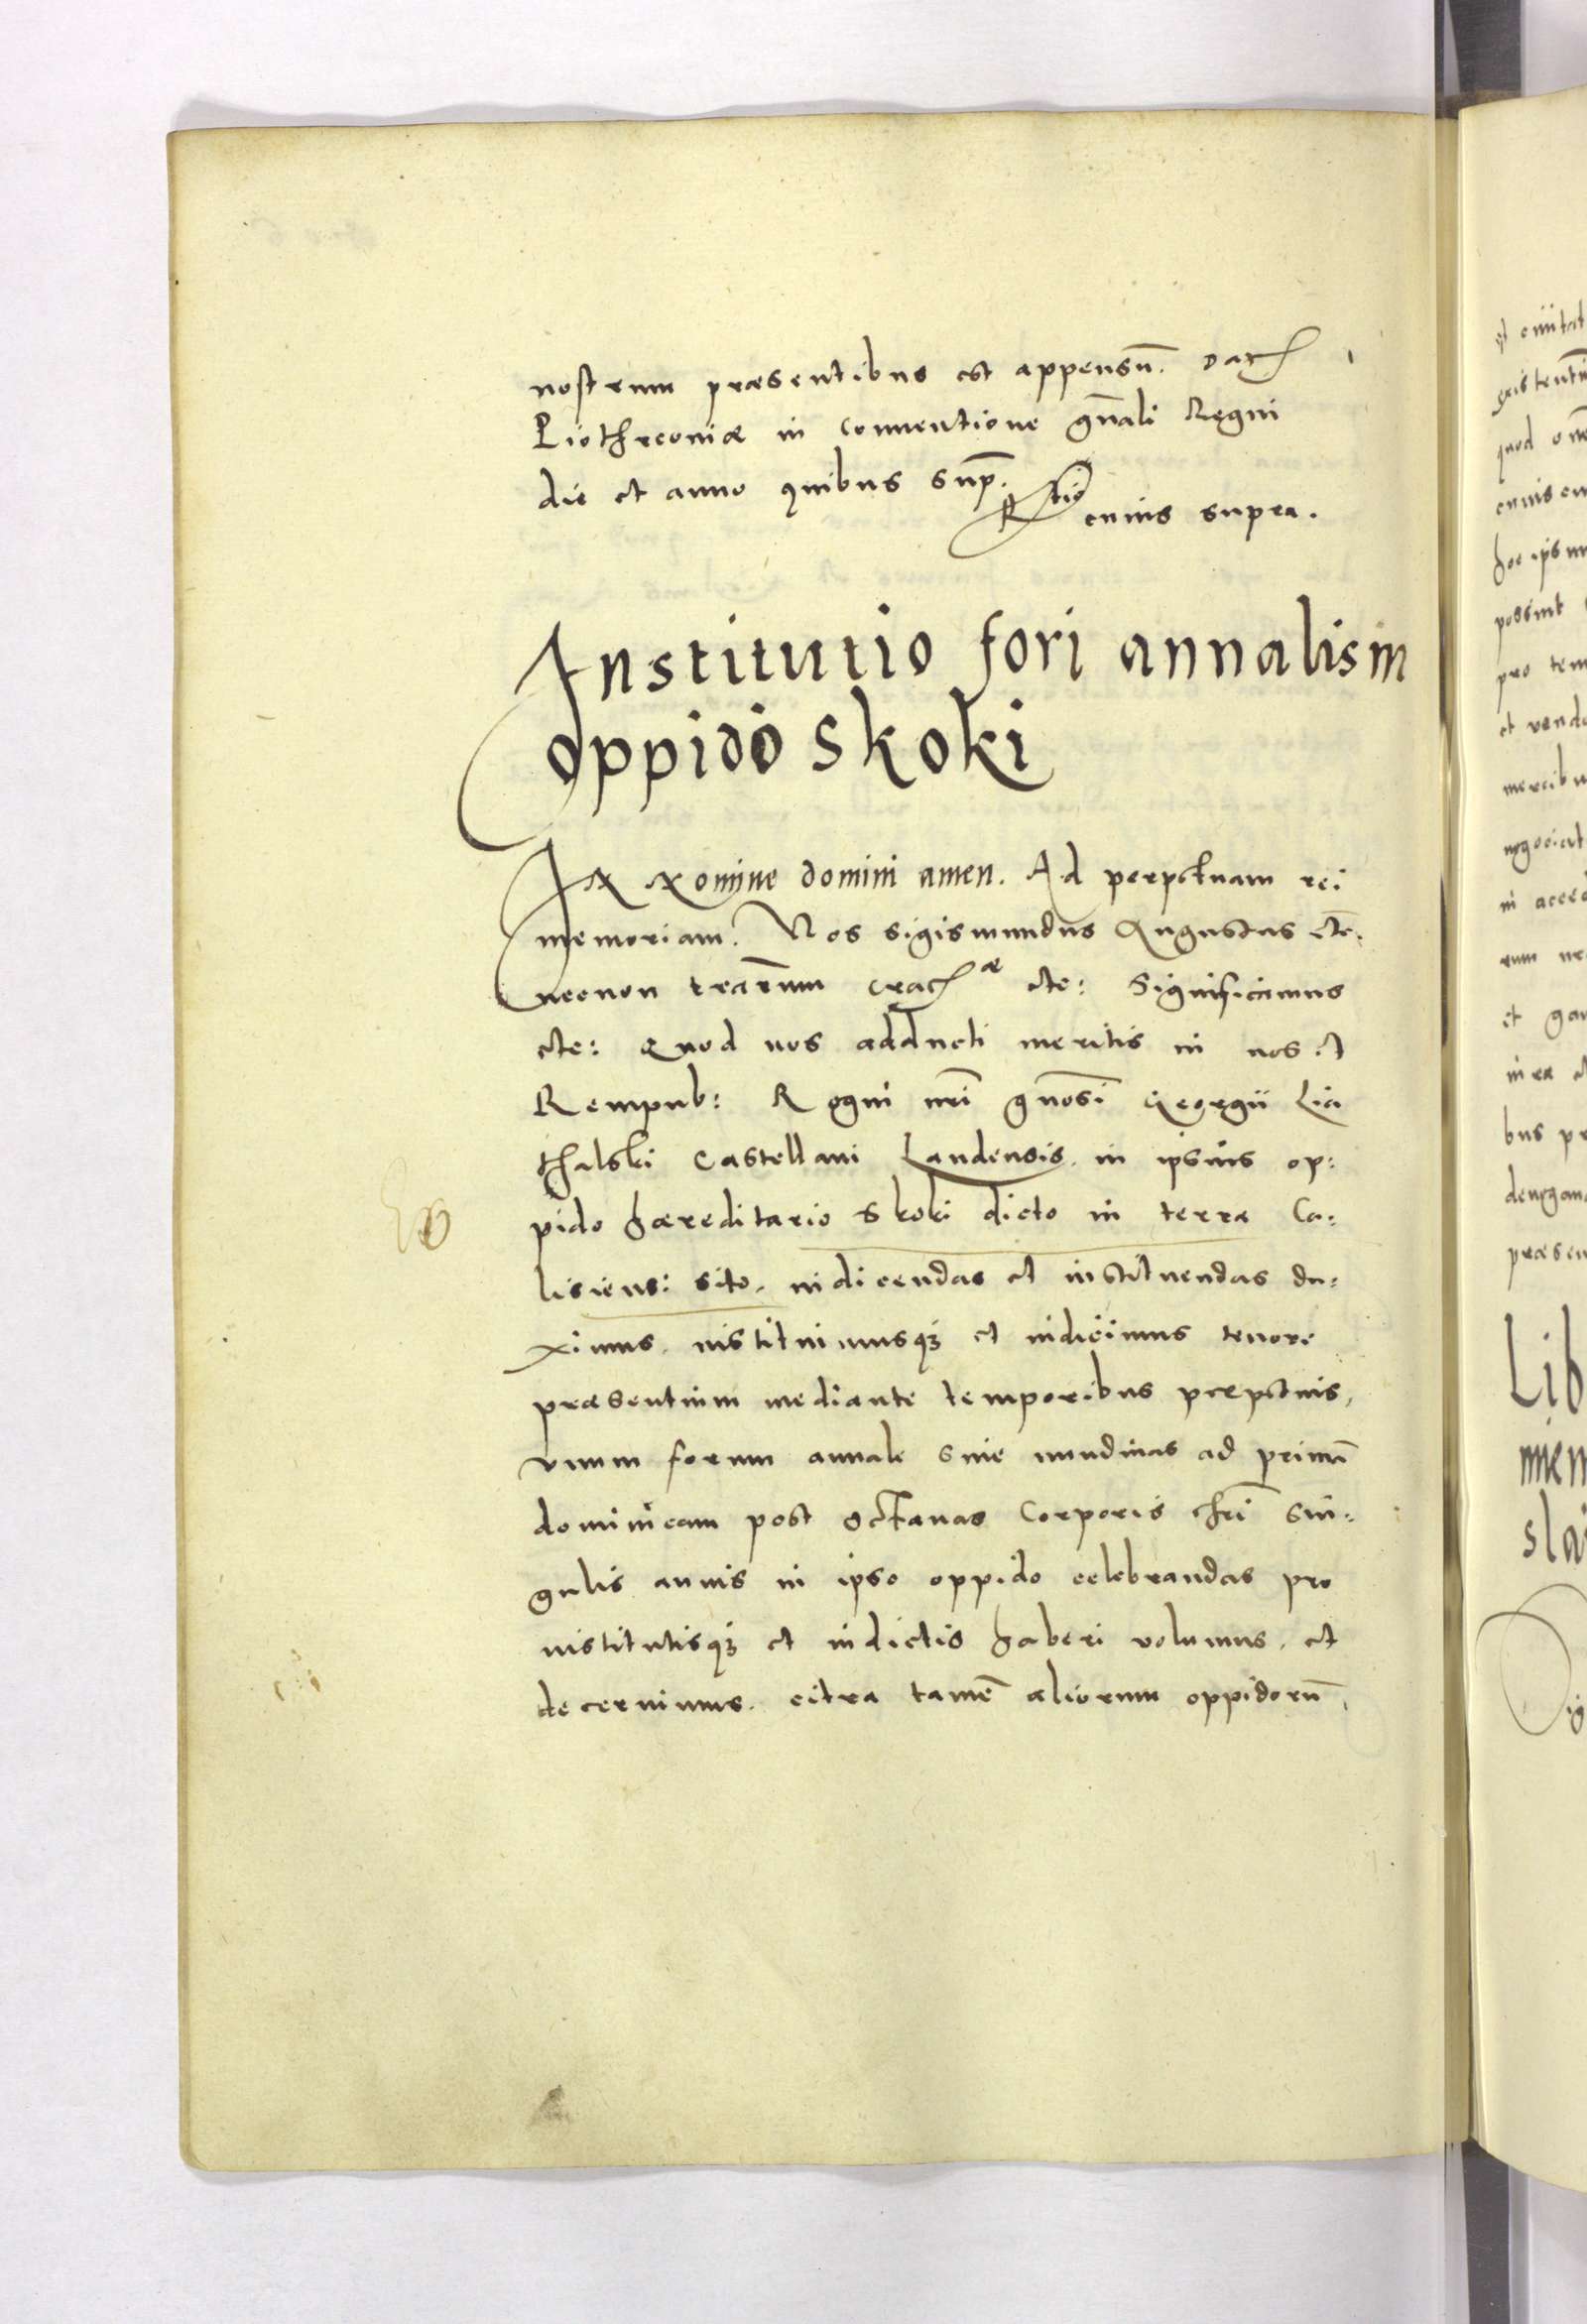 nostrum præsentibus est appensū. Dat
Piothrconiæ in conuentione gn̄ali Regni
die et anno quibus sup̄.
R̄tio eiuius supra.
Institutio fori annalis in
oppido Skoki
IN Nomine domini amen. Ad perpetuam rei
memoriam. Nos Sigismundus Augustus etc.
necnon trārum Crac æ etc: Significamus
etc: Quod nos adducti meritis in nos et
Rempub: Regni nr̄i gn̄osi Georgii La
thalski Castellani Landensis. in ipsius op:
pido hæreditario Skoki dicto in terra Ca:
lisiens: sito. indicendas et instituendas du:
ximus. instituimusq3 et indicimus tenore
præsentium mediante temporibus perpetuis,
vnum forum annale siue nundinas ad primā
dominicam post octauas Corporis chr̄i sin:
gulis annis in ipso oppido celebrandas pro
institutisq3 et indictis haberi volumus. et
decernimus. citra tamē aliorum oppidorū
et ciuitat
existentiū
quod
hoc ipsum
possint
pro tem
et vende
mercibu
negociat
in acced
rum
et gau
iura et
bus pr
denegan
præsen
Lib
miem
slai